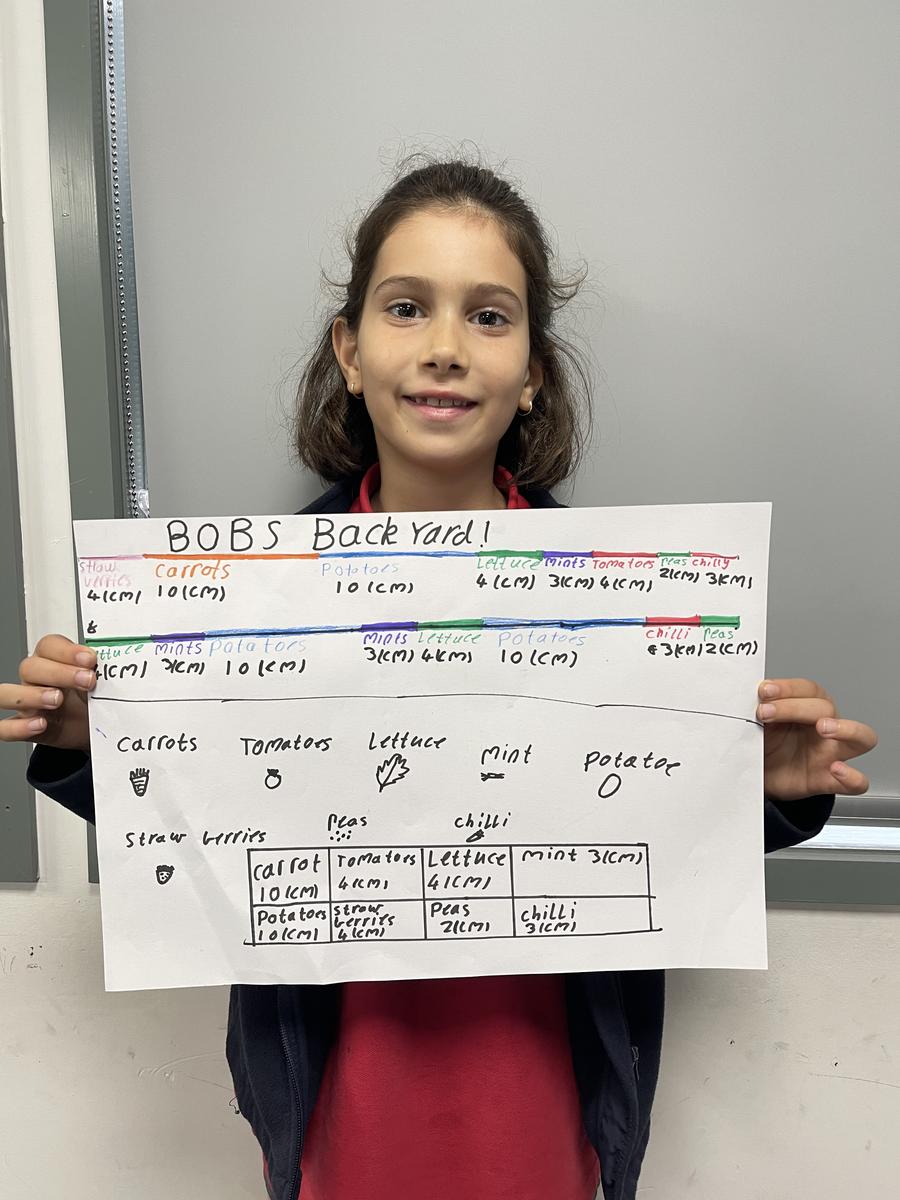 BOBS Backyard!
straw carrots Potatoes Lettuce Mints Tomatoes Peas chilly
berries
4(cm) 10(cm) 10(cm) 4(cm) 3(cm) 4(cm) 2(cm) 3(cm)
ttuce Mints Potatoes Mints Lettuce Potatoes chilli Peas
4(cm) 3(cm) 10(cm) 3(cm) 4(cm) 10(cm) 3(cm) 2(cm)
Carrots Tomatoes Lettuce Mint Potatoe
Straw berries Peas chilli
carrot Tomatoes Lettuce Mint 3(cm)
10(cm) 4(cm) 4(cm)
Potatoes straw Peas chilli
berries
10(cm) 4(cm) 2(cm) 3(cm)